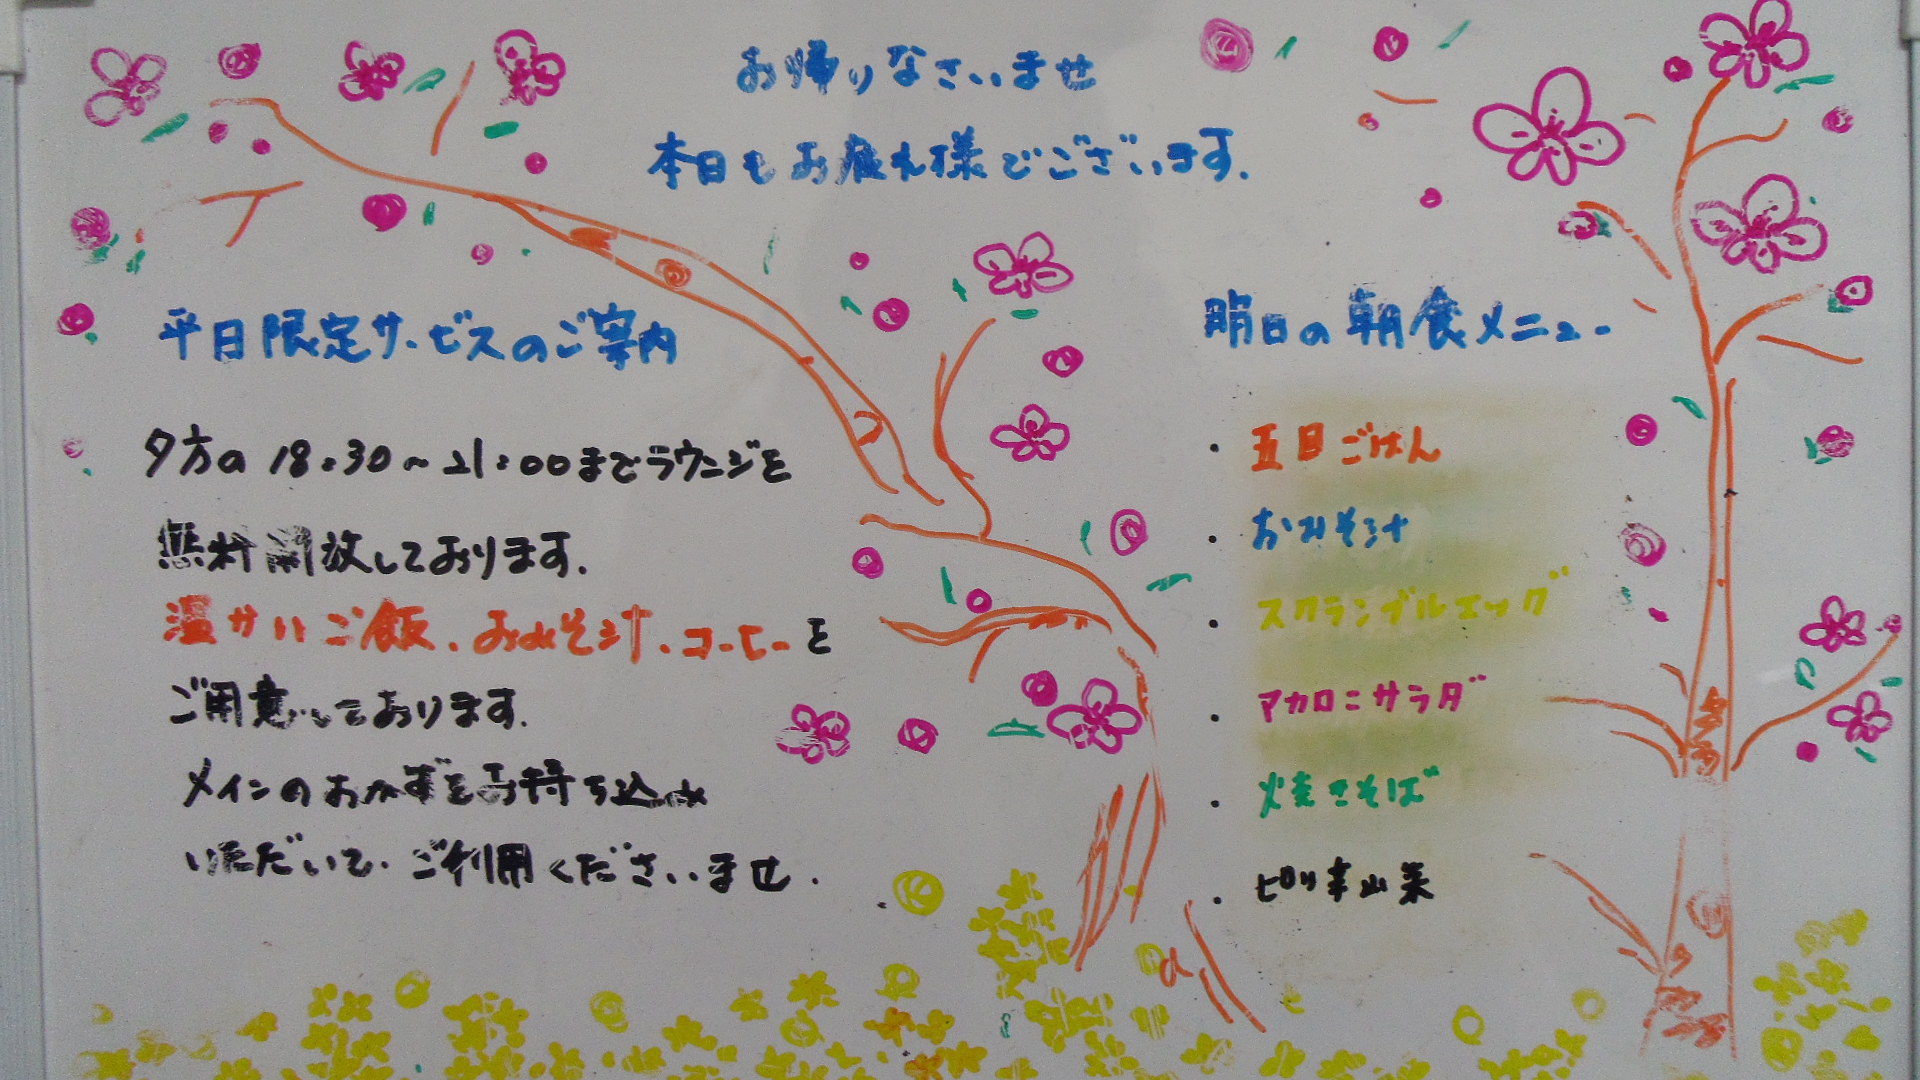 お帰りなさいませ
本日もお疲れ様でございます.
平日限定サービスのご案内
夕方の18:30~21:00までラウンジを
無料開放しております.
温かいご飯、おみそ汁、コーヒーを
ご用意しております.
メインのおかずをお持ち込み
いただいて、ご利用くださいませ.
明日の朝食メニュー
・五目ごはん
・おみそ汁
・スクランブルエッグ
・マカロニサラダ
・焼きそば
・ピリ辛山菜